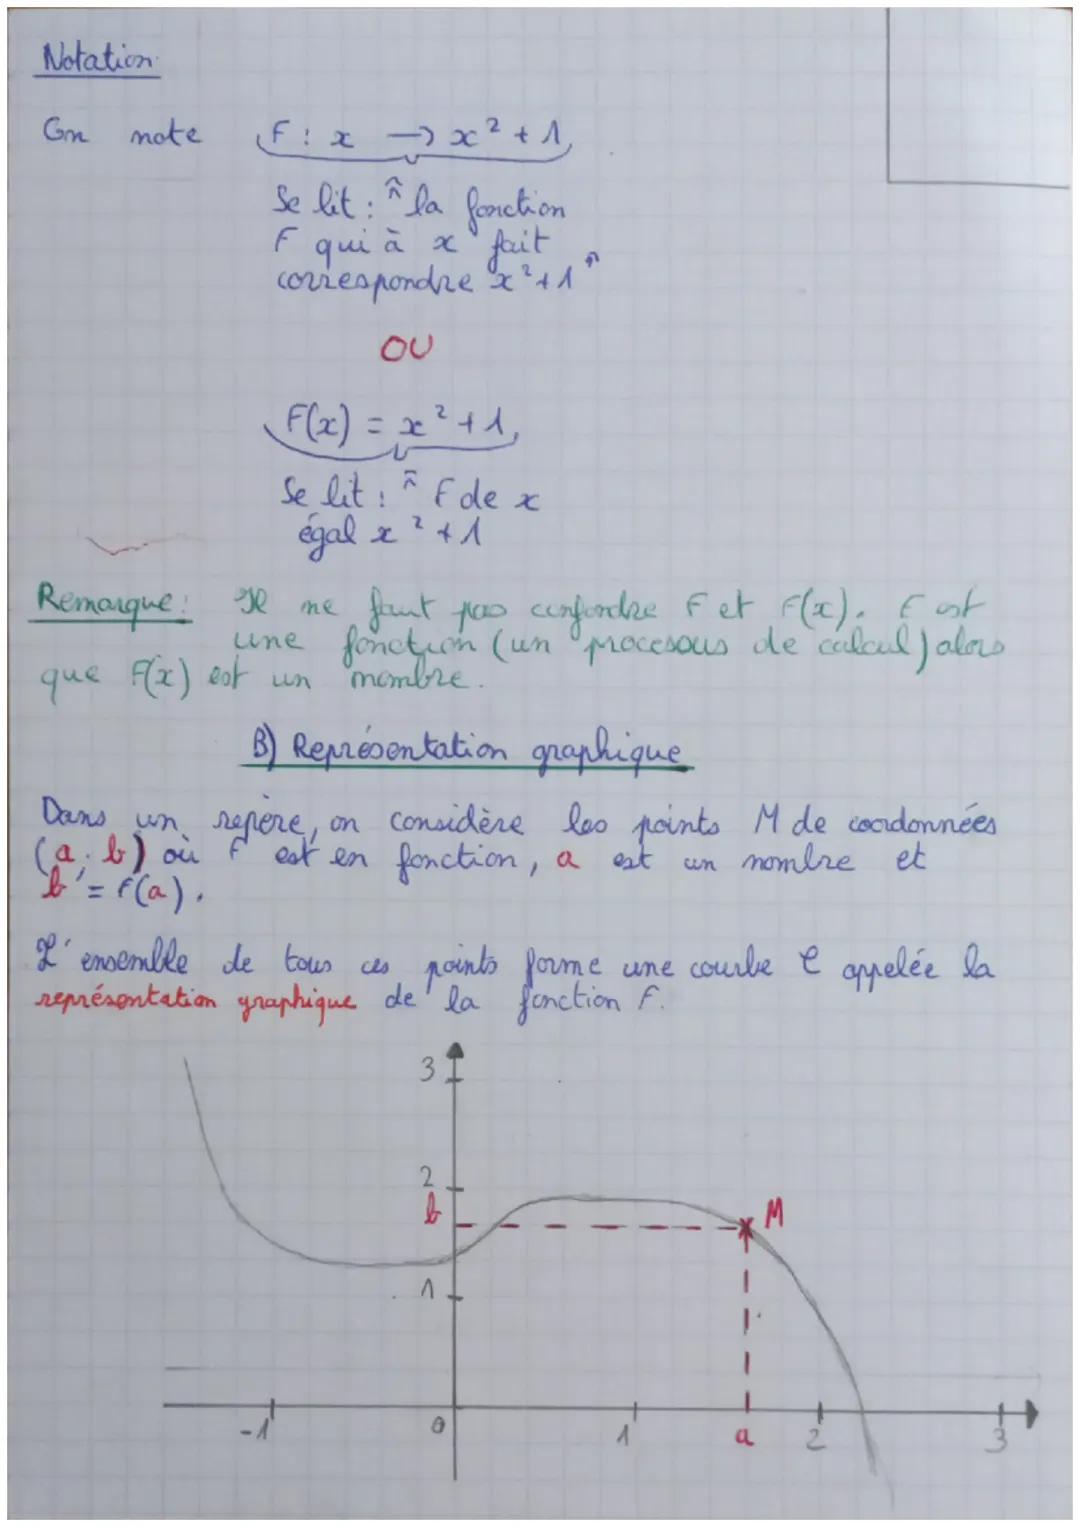 Notation
On note F : x → x² + 1
Se lit : " la fonction
F qui à x fait
correspondre x²+1 "
OU
F(x) = x² + 1
Se lit : " F de x
égal x² + 1
Remarque : Il ne faut pas confondre F et F(x). F est
une fonction (un processus de calcul) alors
que F(x) est un nombre.
B) Représentation graphique
Dans un repère, on considère les points M de coordonnées
(a ; b) où F est en fonction, a est un nombre et
b = F(a).
L'ensemble de tous ces points forme une courbe C appelée la
représentation graphique de la fonction F.
3
2
b
M
1
-1 0 1 a 2 3